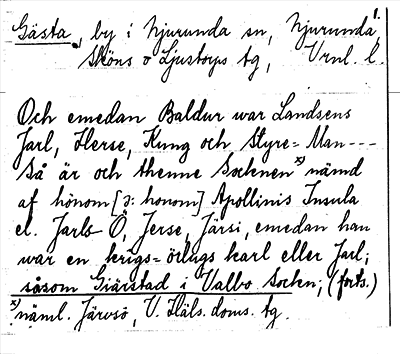 1.
Gästa, by i Njurunda sn, Njurunda,
Sköns o Ljustorps tg, Vrnl. l.
Och emedan Baldur war Landsens
Jarl, Herse, Kung och Styre=Man---
Så är och thenne Socknen x) nämd
af hönom [ɔ: honom] Apollinis Insula
el. Jarls-Ö, Jerse, Järsi, emedan han
war en krigs-örlugs karl eller Jarl;
såsom Giärstad i Valbo Sockn; (forts.)
x) näml. Järvsö, V. Häls. doms. tg.